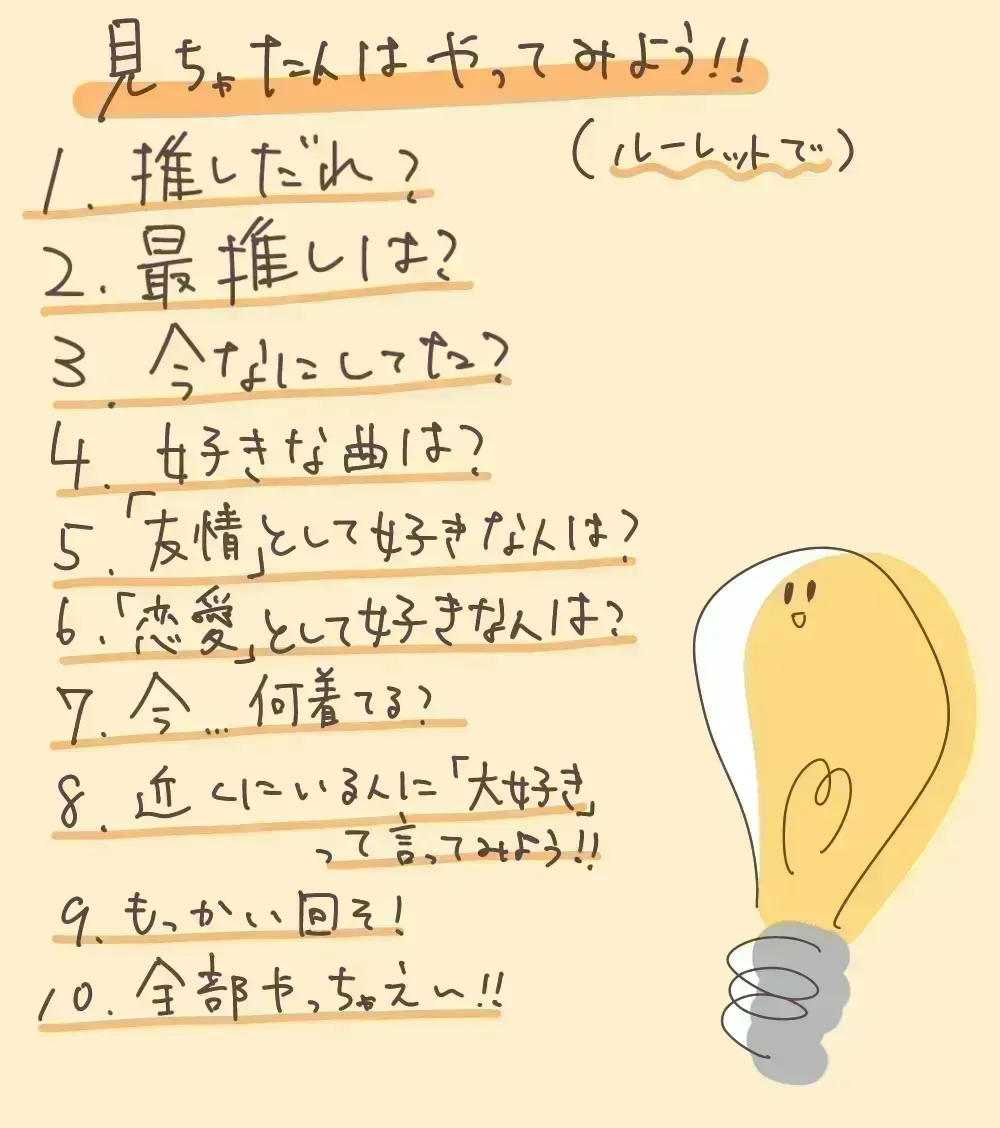 見ちゃた人はやってみよう!!
(ルーレットで)
1. 推しだれ?
2. 最推しは?
3. 今なにしてた?
4. 好きな曲は?
5.「友情」として好きな人は?
6.「恋愛」として好きな人は?
7. 今...何着てる?
8. 近くにいる人に「大好き」
って言ってみよう!!
9. もっかい回そ!
10. 全部やっちゃえぃ!!